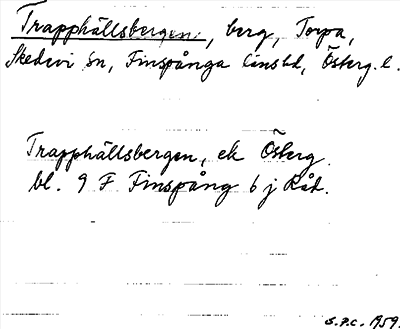 Trapphällsbergen, berg, Torpa,
Skedevi sn, Finspånga länsbd, Österg. l.
Trapphällsbergen, ek Österg.
bl. 9 F Finspång 6 j Råd.
S.P.C. 1959.